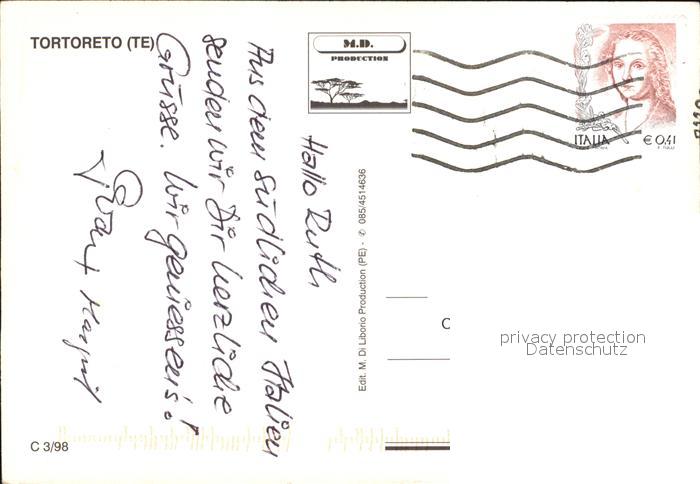 TORTORETO (TE)
M.D.
PRODUCTION
ITALIA
€ 0,41
Hallo Ruth
Aus dem südlichen Italien
senden wir Dir herzliche
Grüsse. Wir geniessen's!
+ Margrit
Edit. M. Di Liborio Production (PE) - ✆ 085/4514636
C
privacy protection
Datenschutz
C 3/98